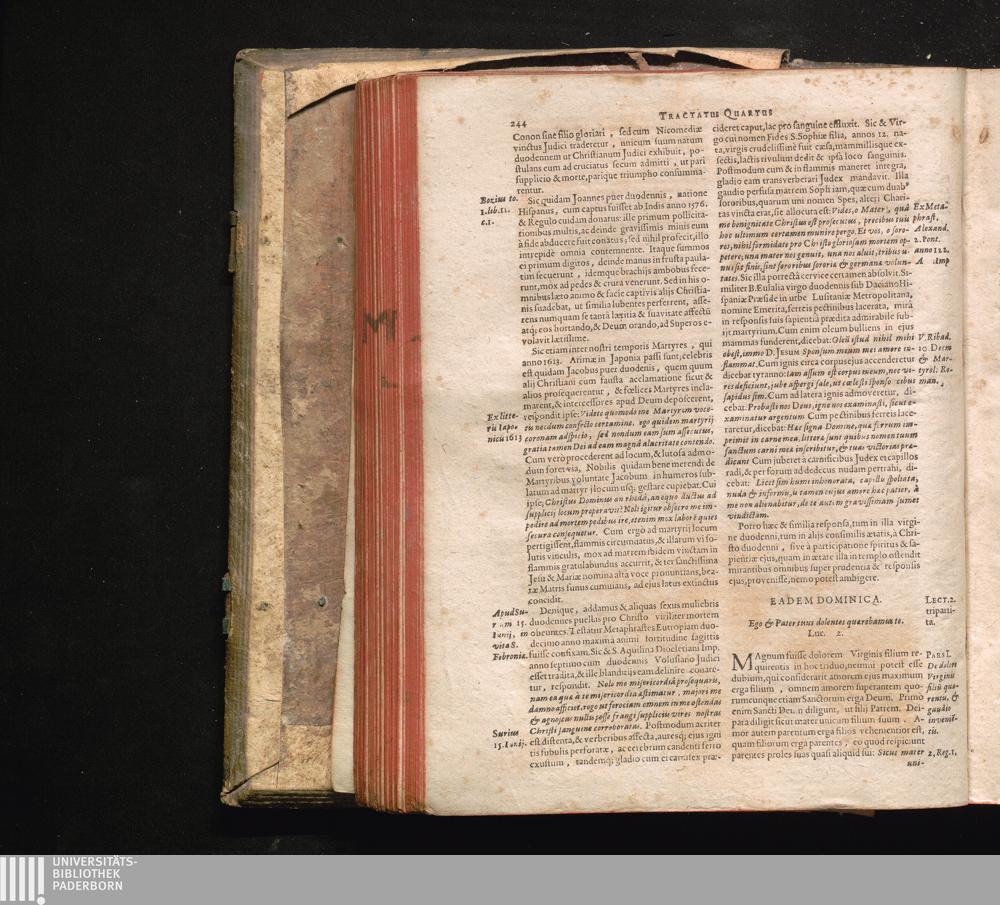 244
TRACTATUS QUARTUS
Conon sine filio gloriari, sed cum Nicomediæ
vinctus Judici traderetur, unicum suum natum
duodennem ut Christianum Judici exhibuit, po-
stulans eum ad cruciatus secum admitti, ut pari
supplicio & morte, parique triumpho consumma-
rentur.
Bozius to.
1. lib. 11.
c. 1.
Sic quidam Joannes puer duodennis, natione
Hispanus, cum captus fuisset ab Indis anno 1576.
& Regulo cuidam donatus: ille primum pollicita-
tionibus multis, ac deinde gravissimis minis eum
à fide abducere fuit conatus; sed nihil profecit, illo
intrepidè omnia contemnente. Itaque summos
ei primum digitos, deinde manus in frusta paula-
tim secuerunt, idemque brachijs ambobus fece-
runt, mox ad pedes & crura venerunt. Sed in his o-
mnibus læto animo & facie captivis alijs Christia-
nis suadebat, ut similia lubentes perferrent, asse-
rens numquam se tantâ lætitiâ & suavitate affectū
atq; eos hortando, & Deum orando, ad Superos e-
volavit lætissime.
Sic etiam inter nostri temporis Martyres, qui
anno 1613. Arimæ in Japonia passi sunt, celebris
est quidam Jacobus puer duodenis, quem quum
alij Christiani cum fausta acclamatione sicut &
alios prosequerentur, & fœlices Martyres incla-
marent, & intercessores apud Deum deposcerent,
Ex litte-
ris Iapo-
nicis 1613
respondit ipse: Videte quomodo me Martyrum voce-
tis necdum confecto certamine. ego quidem martyrij
coronam adspicio, sed nondum eam sum assecutus,
gratiâ tamen Dei ad eam magnâ alacritate contendo.
Cum verò procederent ad locum, & lutosa admo-
dum foret via, Nobilis quidam bene merendi de
Martyribus voluntate Jacobum in humeros sub-
latum ad martyrij locum usq; gestare cupiebat. Cui
ipse, Christus Dominus an rhedâ, an equo ductus ad
supplicij locum properavit? Noli igitur obsecro me im-
pedire ad mortem pedibus ire, etenim mox laborē quies
secura consequetur. Cum ergò ad martyrij locum
pertigissent, flammis circumdatus, & illarum vi so-
lutis vinculis, mox ad matrem ibidem vinctam in
flammis gratulabundus accurrit, & ter sanctissima
Jesu & Mariæ nomina altâ voce pronuntians, bea-
tæ Matris sinus cumulans, ad ejus latus extinctus
concidit.
Apud Su-
rium 15.
Iunij, in
vita S.
Febroniæ.
Denique, addamus & aliquas sexus muliebris
duodennes puellas pro Christo viriliter mortem
obeuntes. Testatur Metaphrastes Eutropiam duo-
decimo anno maximâ animi fortitudine sagittis
fuisse confixam. Sic & S. Aquilina Diocletiani Imp.
anno septimo cum duodennis Volusiano Judici
esset tradita, & ille blanditijs eam delinire conare-
tur, respondit. Nolo me misericordiâ prosequaris,
nam ea quæ à te misericordia æstimatur, majori me
damno afficeret. rogo ut ferociam omnem in me ostendas
& agnoscas nullis posse frangi supplicijs vires nostras
Surius
15. Iunij.
Christi sanguine corroboratas. Postmodum acriter
est distenta, & verberibus affecta, aures q; ejus igni
tis subulis perforatæ, ac cerebrum candenti ferro
exustum, tandemq; gladio cum ei carnifex præ-
cideret caput, lac pro sanguine effluxit. Sic & Vir-
go cui nomen Fides S. Sophiæ filia, annos 12. na-
ta, virgis crudelissimè fuit cæsa, mammillisque ex-
sectis, lactis rivulum dedit & ipsa loco sanguinis.
Postmodum cum & in flammis maneret integra,
gladio eam transverberari Judex mandavit. Illa
gaudio perfusa matrem Sophiam, quæ cum duabꝰ
sororibus, quarum uni nomen Spes, alteri Chari-
tas vincta erat, sic allocuta est: Vides, o Mater, quâ
me benignitate Christus est prosecutus, precibus tuis
hoc ultimum certamen munire pergo. Et vos, o soro-
res, nihil formidate pro Christo gloriosam mortem op-
petere; una mater nos genuit, una nos aluit, tribus u-
nus sit finis, sint sororibus sororia & germana volun-
tates. Sic illa porrectâ cervice certamen absolvit. Si-
Ex Meta-
phrast.
Alexand.
2. Pont.
anno 122.
A Imp
militer B. Eulalia virgo duodennis sub Daciano Hi-
spaniæ Præside in urbe Lusitaniæ Metropolitana,
nomine Emerita, ferreis pectinibus lacerata, mirâ
in responsis suis sapientiâ prædita admirabile sub-
ijt martyrium. Cum enim oleum bulliens in ejus
mammas funderent, dicebat: Oleū istud nihil mihi
obest, immo D. Jesum Sponsum meum mei amore in-
flammat. Cum ignis circa corpus ejus accenderetur
dicebat tyranno: tam assum est corpus meum, nec vi-
res deficiunt, jube aspergi sale, ut cœlesti sponso cibus
sapidus sim. Cum ad latera ignis admoveretur, di-
cebat: Probasti nos Deus, igne nos examinasti, sicut e-
xaminatur argentum Cum pectinibus ferreis lace-
raretur, dicebat: Hæc signa Domine, quæ ferrum im-
primit in carne mea, litteræ sunt quibus nomen tuum
sanctum carni meæ inscribitur, & tuas victorias præ-
dicant Cum juberet à carnificibus Judex et capillos
radi, & per forum ad dedecus nudam pertrahi, di-
cebat: Licet sim humi inhonorata, capillis spoliata,
nuda & informis, tu tamen cujus amore hæc patior, à
me non alienabitur, de te autem gravissimam sumet
vindictam.
V. Ribad.
10. Decem
& Mar-
tyrol: Ro-
man.
Porro hæc & similia responsa, tum in illa virgi-
ne duodenni, tum in alijs consimilis ætatis, à Chri-
sto duodenni, sive à participatione spiritus & sa-
pientiæ ejus, quam in ætate illa in templo ostendit
mirantibus omnibus super prudentia & responsis
ejus, provenisse, nemo potest ambigere.
EADEM DOMINICA.
LECT. 2.
triparti-
ta.
Ego & Pater tuus dolentes quærebamus te.
Luc. 2.
MAgnum fuisse dolorem Virginis filium re-
quirentis in hoc triduo, nemini potest esse
dubium, qui considerarit amorem ejus maximum
erga filium, omnem amorem superantem quo-
rumcunque etiam Sanctorum erga Deum. Primo
enim Sancti Deū diligunt, ut filij Patrem. Dei-
para diligit sicut mater unicum filium suum. A-
mor autem parentum erga filios vehementior est,
quam filiorum erga parentes, eo quod reipiciunt
parentes proles suas quasi aliquid sui: Sicut mater
PARS I.
De dolore
Virginis
filiū quæ-
rentis, &
gaudio
invenien-
tis.
2. Reg. 1.
uni-
UNIVERSITÄTS-
BIBLIOTHEK
PADERBORN